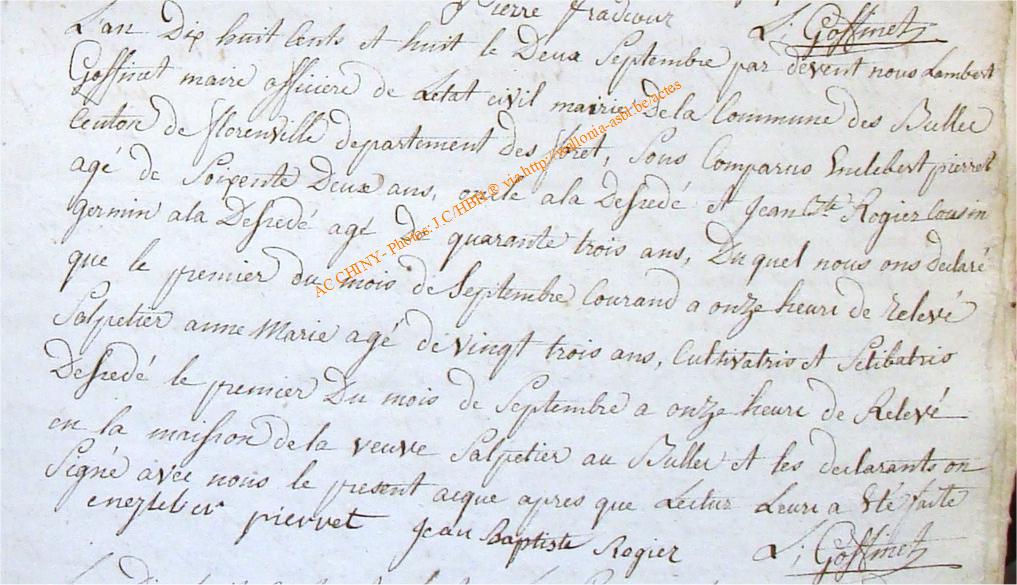 Pierre Fradcour L; Goffinet
L'an Dix huit Cents et huit le Deux Septembre par devent nous Lambert
Goffinet maire officiere de Letat civil mairie De la Commune des Bulles
Centon de florenville departement des foret, Sons Comparus Englebert pierret
agé de Soixente Deux ans, oncle a la Desfedé et Jean Bte Rogier Cousin
Germin a la Desfedé agé De quarante trois ans, Du quel nous ons declaré
que le premier du mois de Septembre Courand a onze heure de relevé
Salpetier anne Marie agé de vingt trois ans, Cultivatris et Selibatris
Desfedé le premier Du mois de Septembre a onze heure de Relevé
en la maisson de la veuve Salpetier au Bulles et les declarants on
Signé avec nous le present acque apres que Lectur Leure a Eté faite
pierret Jean Baptiste Rogier L; Goffinet
AC CHINY - Photos: J.C/HBN.® via http://wallonia-asbl.be/actes